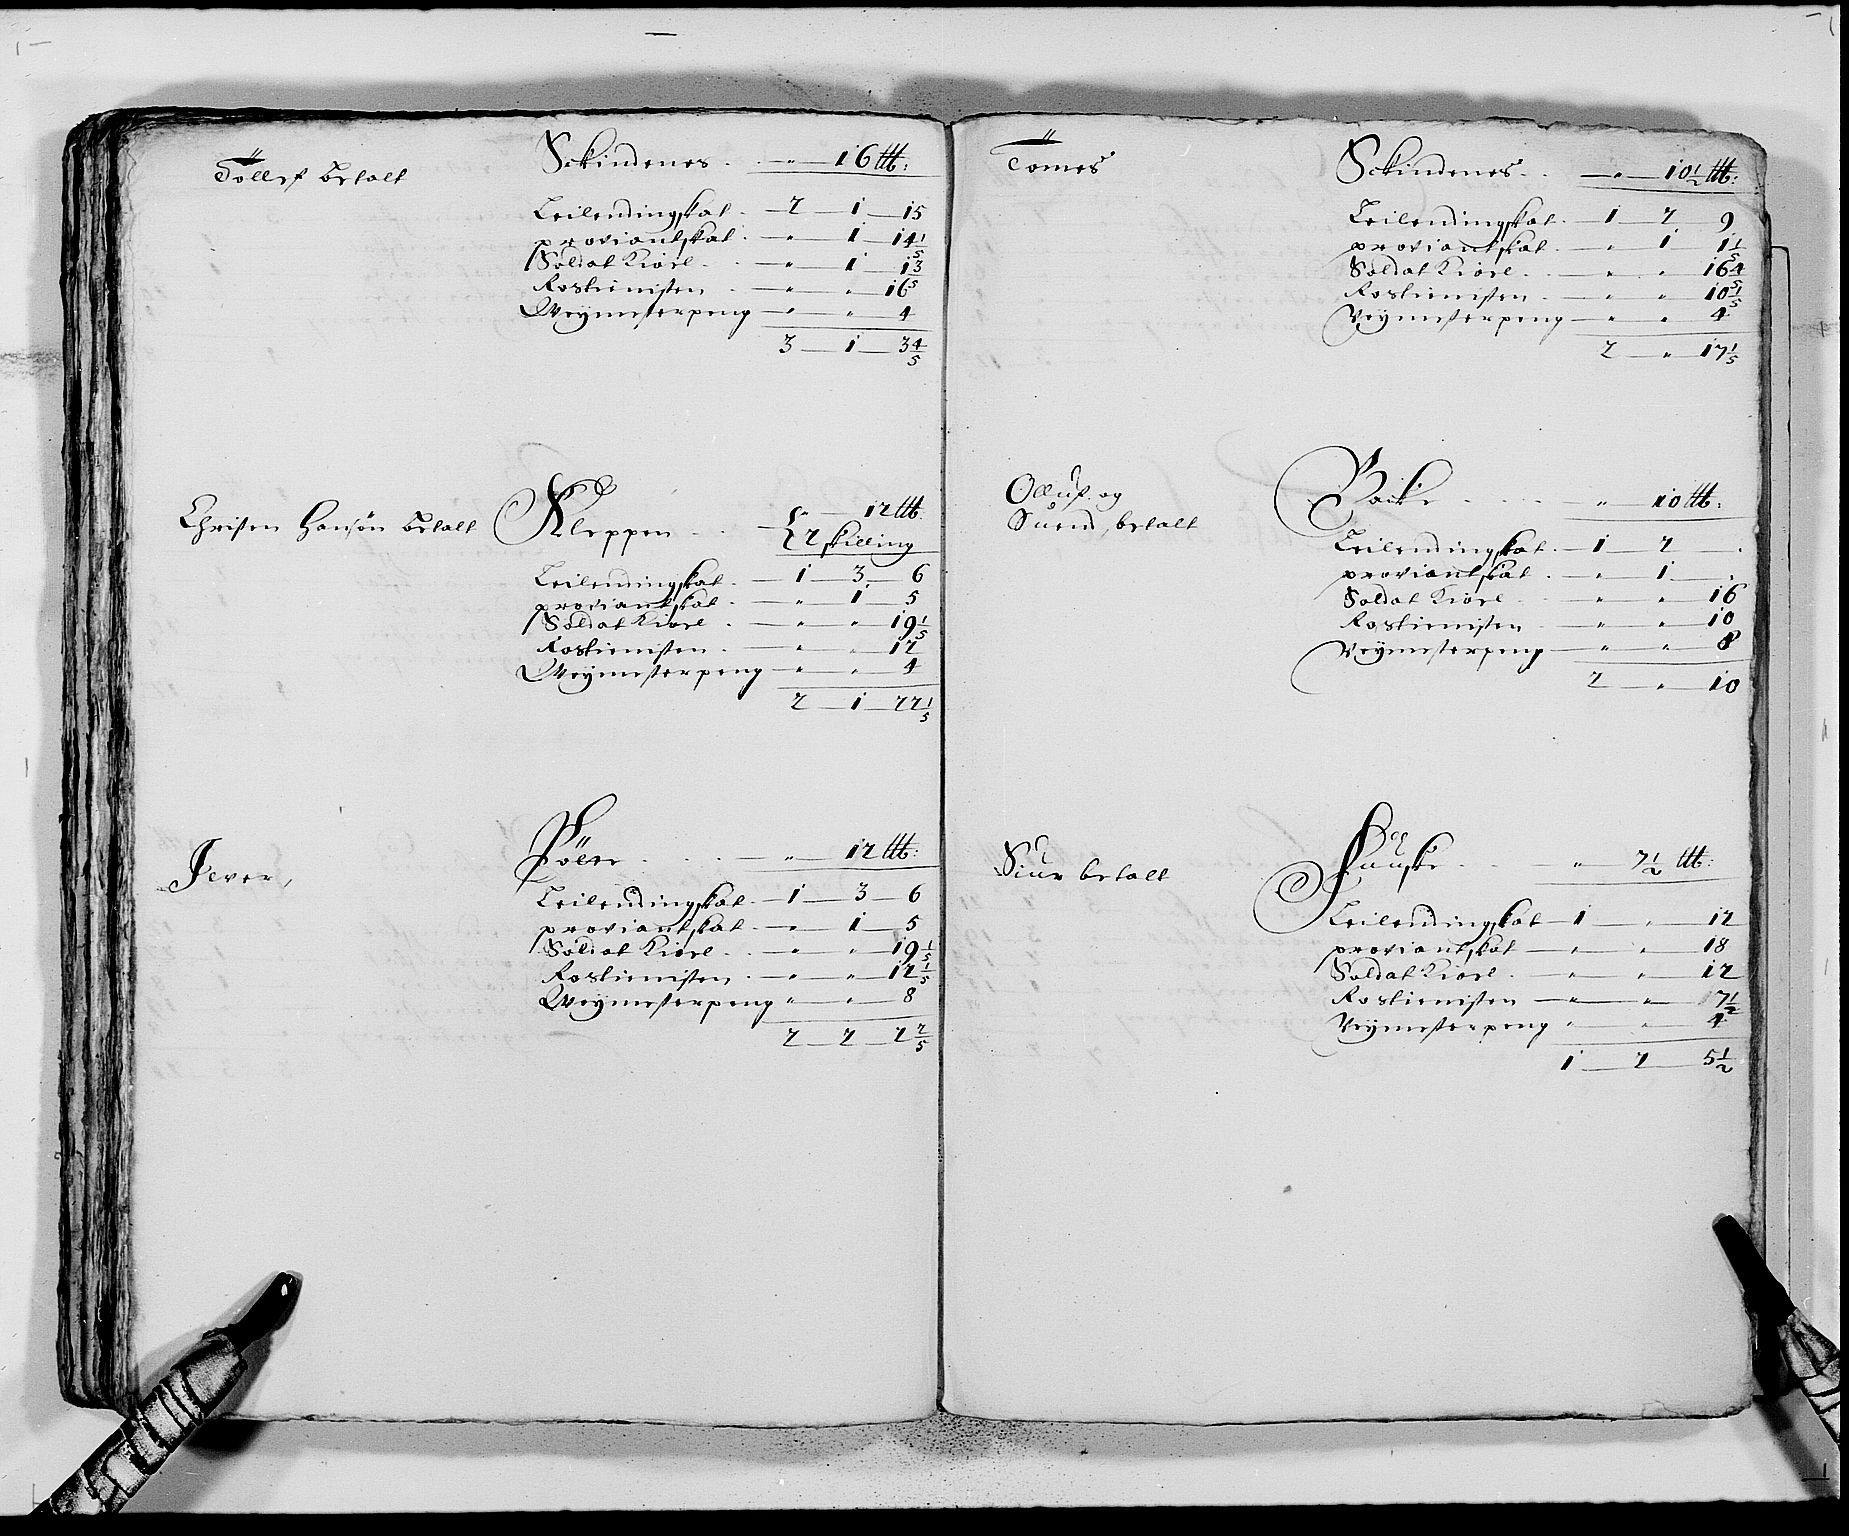 Tollef betalt Sckindenes . . „ 16 ℔:
Leilendingskat . 2 1 15
proviantskat . „ 1 14 1/5
Soldat Kiøel . . „ 1 1 3/5
Rostienisten . „ „ 16
Weÿmesterpeng „ „ 4
3 1 3 4/5
Christen Hansøn betalt Kleppen . . { „ 12 ℔
2 skilling
Leilendingskat . 1 3 6
proviantskat . „ 1 5
Soldat Kiøel . „ „ 19 1/5
Rostienisten . „ „ 12
Weÿmesterpeng „ „ 4
2 1 22 1/5
Iever, „ 12 ℔:
Leilendingskat . 1 3 6
proviantskat . „ 1 5
Soldat Kiøel . . „ „ 19 1/5
Rostienisten . „ „ 12 1/5
Weÿmesterpeng „ „ 8
2 2 2 2/5
Tomes Sckindenes . . „ 10 1/2 ℔:
Leilendingskat . 1 2 9
proviantskat . „ 1 1 1/5
Soldat Kiøel . . „ „ 16 4/5
Rostienisten . „ „ 10 1/5
Veÿmesterpeng „ „ 4
2 „ 17 1/5
Olluf og
Suend, betalt Backe . . . . „ 10 ℔:
Leilendingskat . 1 2 .
proviantskat . „ 1 .
Soldat Kiøel . . „ „ 16
Rostienisten . „ „ 10
Veÿmesterpeng „ „ 8
2 „ 10
Siur betalt Fauske . . . „ 7 1/2 ℔:
Leilendingskat 1 „ 12
proviantskat „ „ 18
Soldat Kiøel . „ „ 12
Rostienisten „ „ 7 1/2
Veÿmesterpeng „ „ 4
1 2 5 1/2